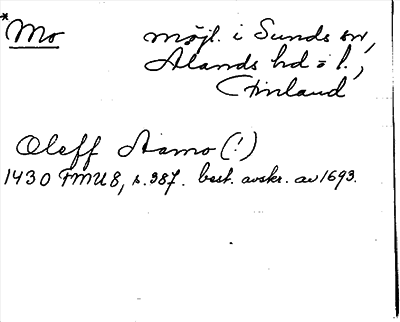 *Mo möjl. i Sunds sn,
Ålands hd o l.,
Finland
Oleff Aamo (!)
1430 FMU 8, s. 387. best. avskr. av 1693.